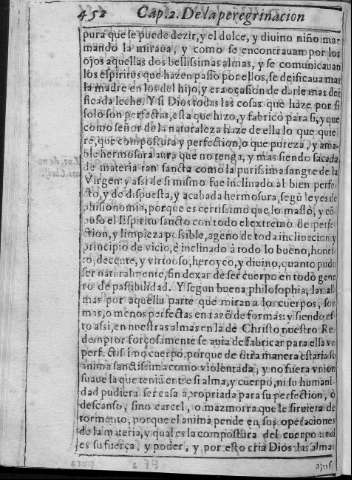 452 Cap. 2. De la peregrinacion
pura que se puede dezir, y el dulce, y diuino niño mar
mando la miraua, y como se encontrauan por los
ojos aquellas dos bellissimas almas, y se comunicauan
los espiritus que hazen passo por ellos, se deificaua mas
la madre en los del hijo, y era ocasion de darle mas dei
ficada leche. Y si Dios todas las cosas que haze por si
solo son perfectas, esta que hizo, y fabricò para si, y que
como señor de la naturaleza haze de ella lo que quie
re, que compostura y perfection, o que pureza, y ama
ble hermosura aura que no tenga, y mas siendo sacada
de materia tan sancta como la purissima sangre de la
Virgen: y assi de si mismo fue inclinado al bien perfe
cto, y de dispuesta, y acabada hermosura, segũ leyes de
phisionomia, porque es certissimo que lo
puso el Espiritu sancto con todo el extremo de perfe
ction, y limpieza possible, ageno de toda inclinacion, y
principio de vicio, è inclinado à todo lo bueno, hones
to, decente, y virtuoso, heroyco, y diuino, quanto pudo
ser naturalmente, sin dexar de ser cuerpo en todo gene
ro de passibilidad. Y segun buena philosophia, las al
mas por aquella parte que miran a los cuerpos, son
mas, o menos perfectas en razõ de formas: y siendo es
to assi, en nuestras almas en la de Christo nuestro Re
demptor forçosamente se auia de fabricar para ella vn
perfectissimo cuerpo, porque de otra manera estaria su
anima sanctissima como violentada, y no fuera vnion
suaue la que tenia entre si alma, y cuerpo, ni su humani
dad pudiera ser casa apropriada para su perfection, o
descanso, sino carcel, o mazmorra que le siruiera de
tormento, porque el anima pende en sus operaciones
de la materia, y qual es la compostura del cuerpo
es su fuerça, y poder, y por esto cria Dios las almas